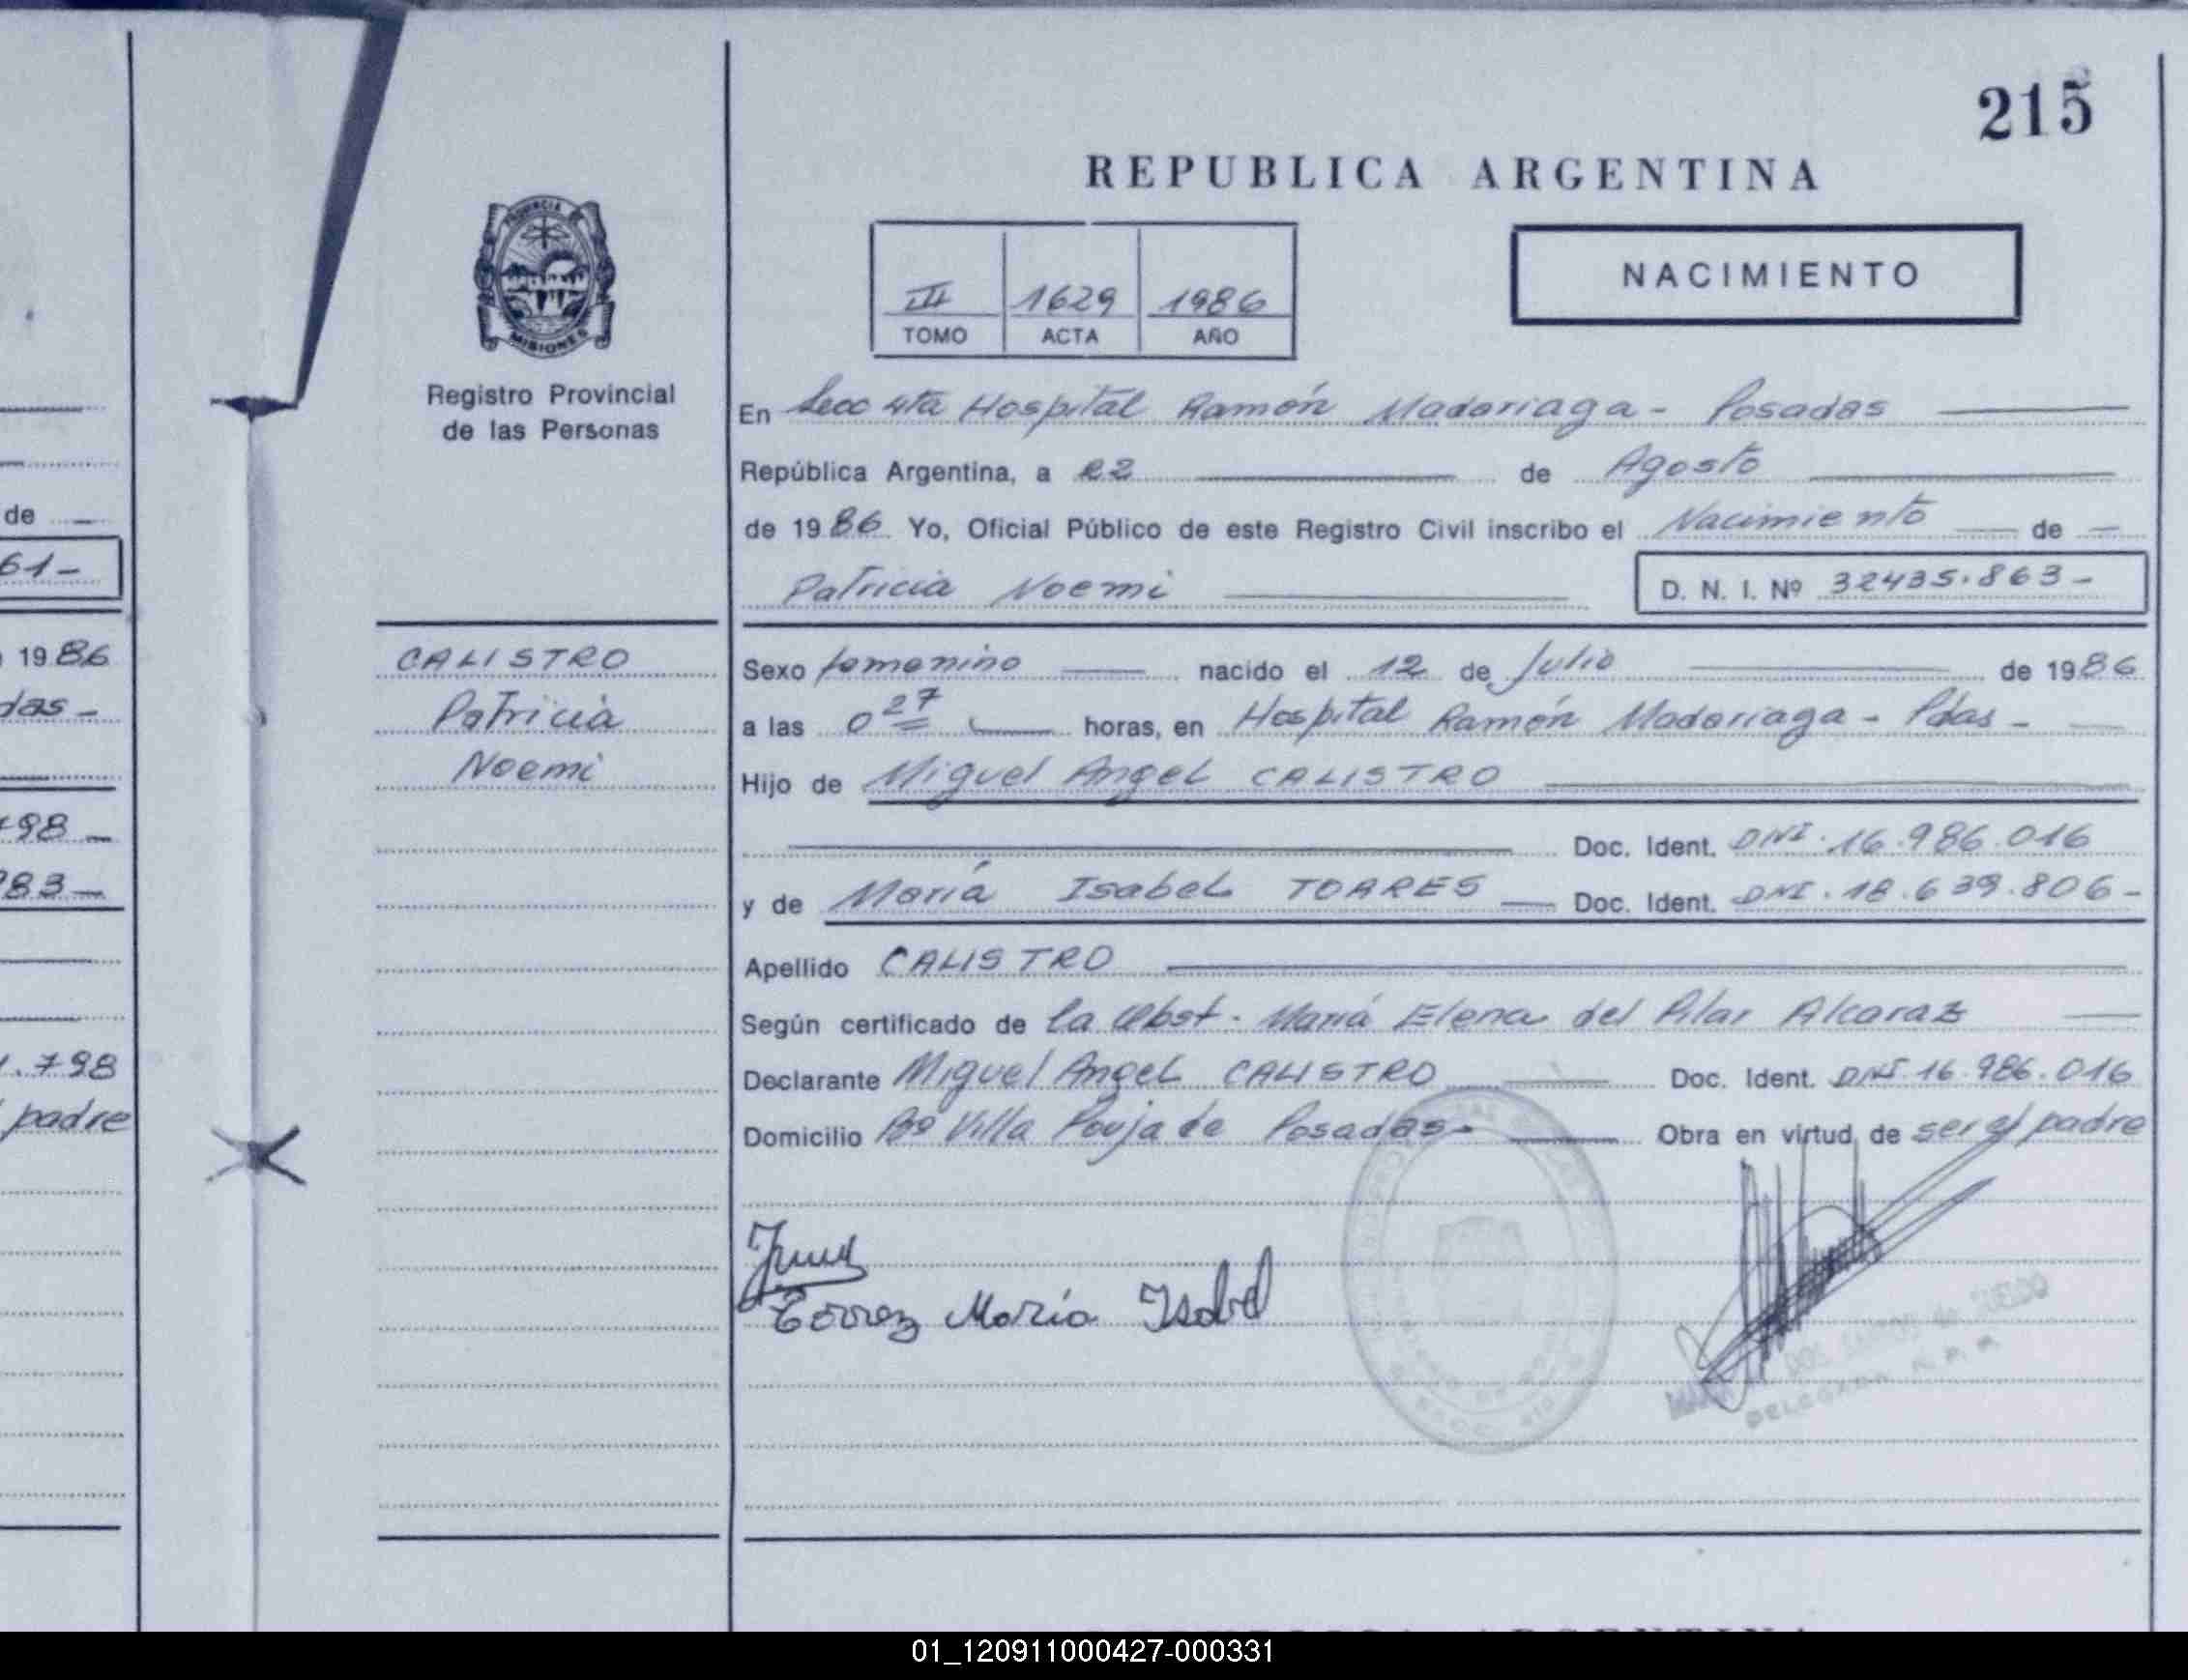 215
REPUBLICA ARGENTINA
PROVINCIA DE
MISIONES
Registro Provincial
de las Personas
III 1629 1986
TOMO ACTA AÑO
NACIMIENTO
En Secc 4ta Hospital Ramón Madariaga - Posadas
República Argentina, a 22 de Agosto
de 1986 Yo, Oficial Público de este Registro Civil inscribo el Nacimiento de
Patricia Noemi D. N. I. Nº 32435.863-
CALISTRO
Patricia
Noemi
Sexo femenino nacido el 12 de Julio de 1986
a las 0 27 horas, en Hospital Ramón Madariaga - Pdas -
Hijo de Miguel Angel CALISTRO
Doc. Ident. DNI. 16.986.016
y de María Isabel TORRES Doc. Ident. DNI. 18.639.806-
Apellido CALISTRO
Según certificado de la Obst. María Elena del Pilar Alcaraz
Declarante Miguel Angel CALISTRO Doc. Ident. DNI 16.986.016
Domicilio Bº Villa Poujade Posadas- Obra en virtud de ser el padre
Torrez María Isabel
DOS SANTOS de
DELEGADA R. P. P.
de
61-
1986
das-
798-
983-
.798
padre
01_120911000427-000331